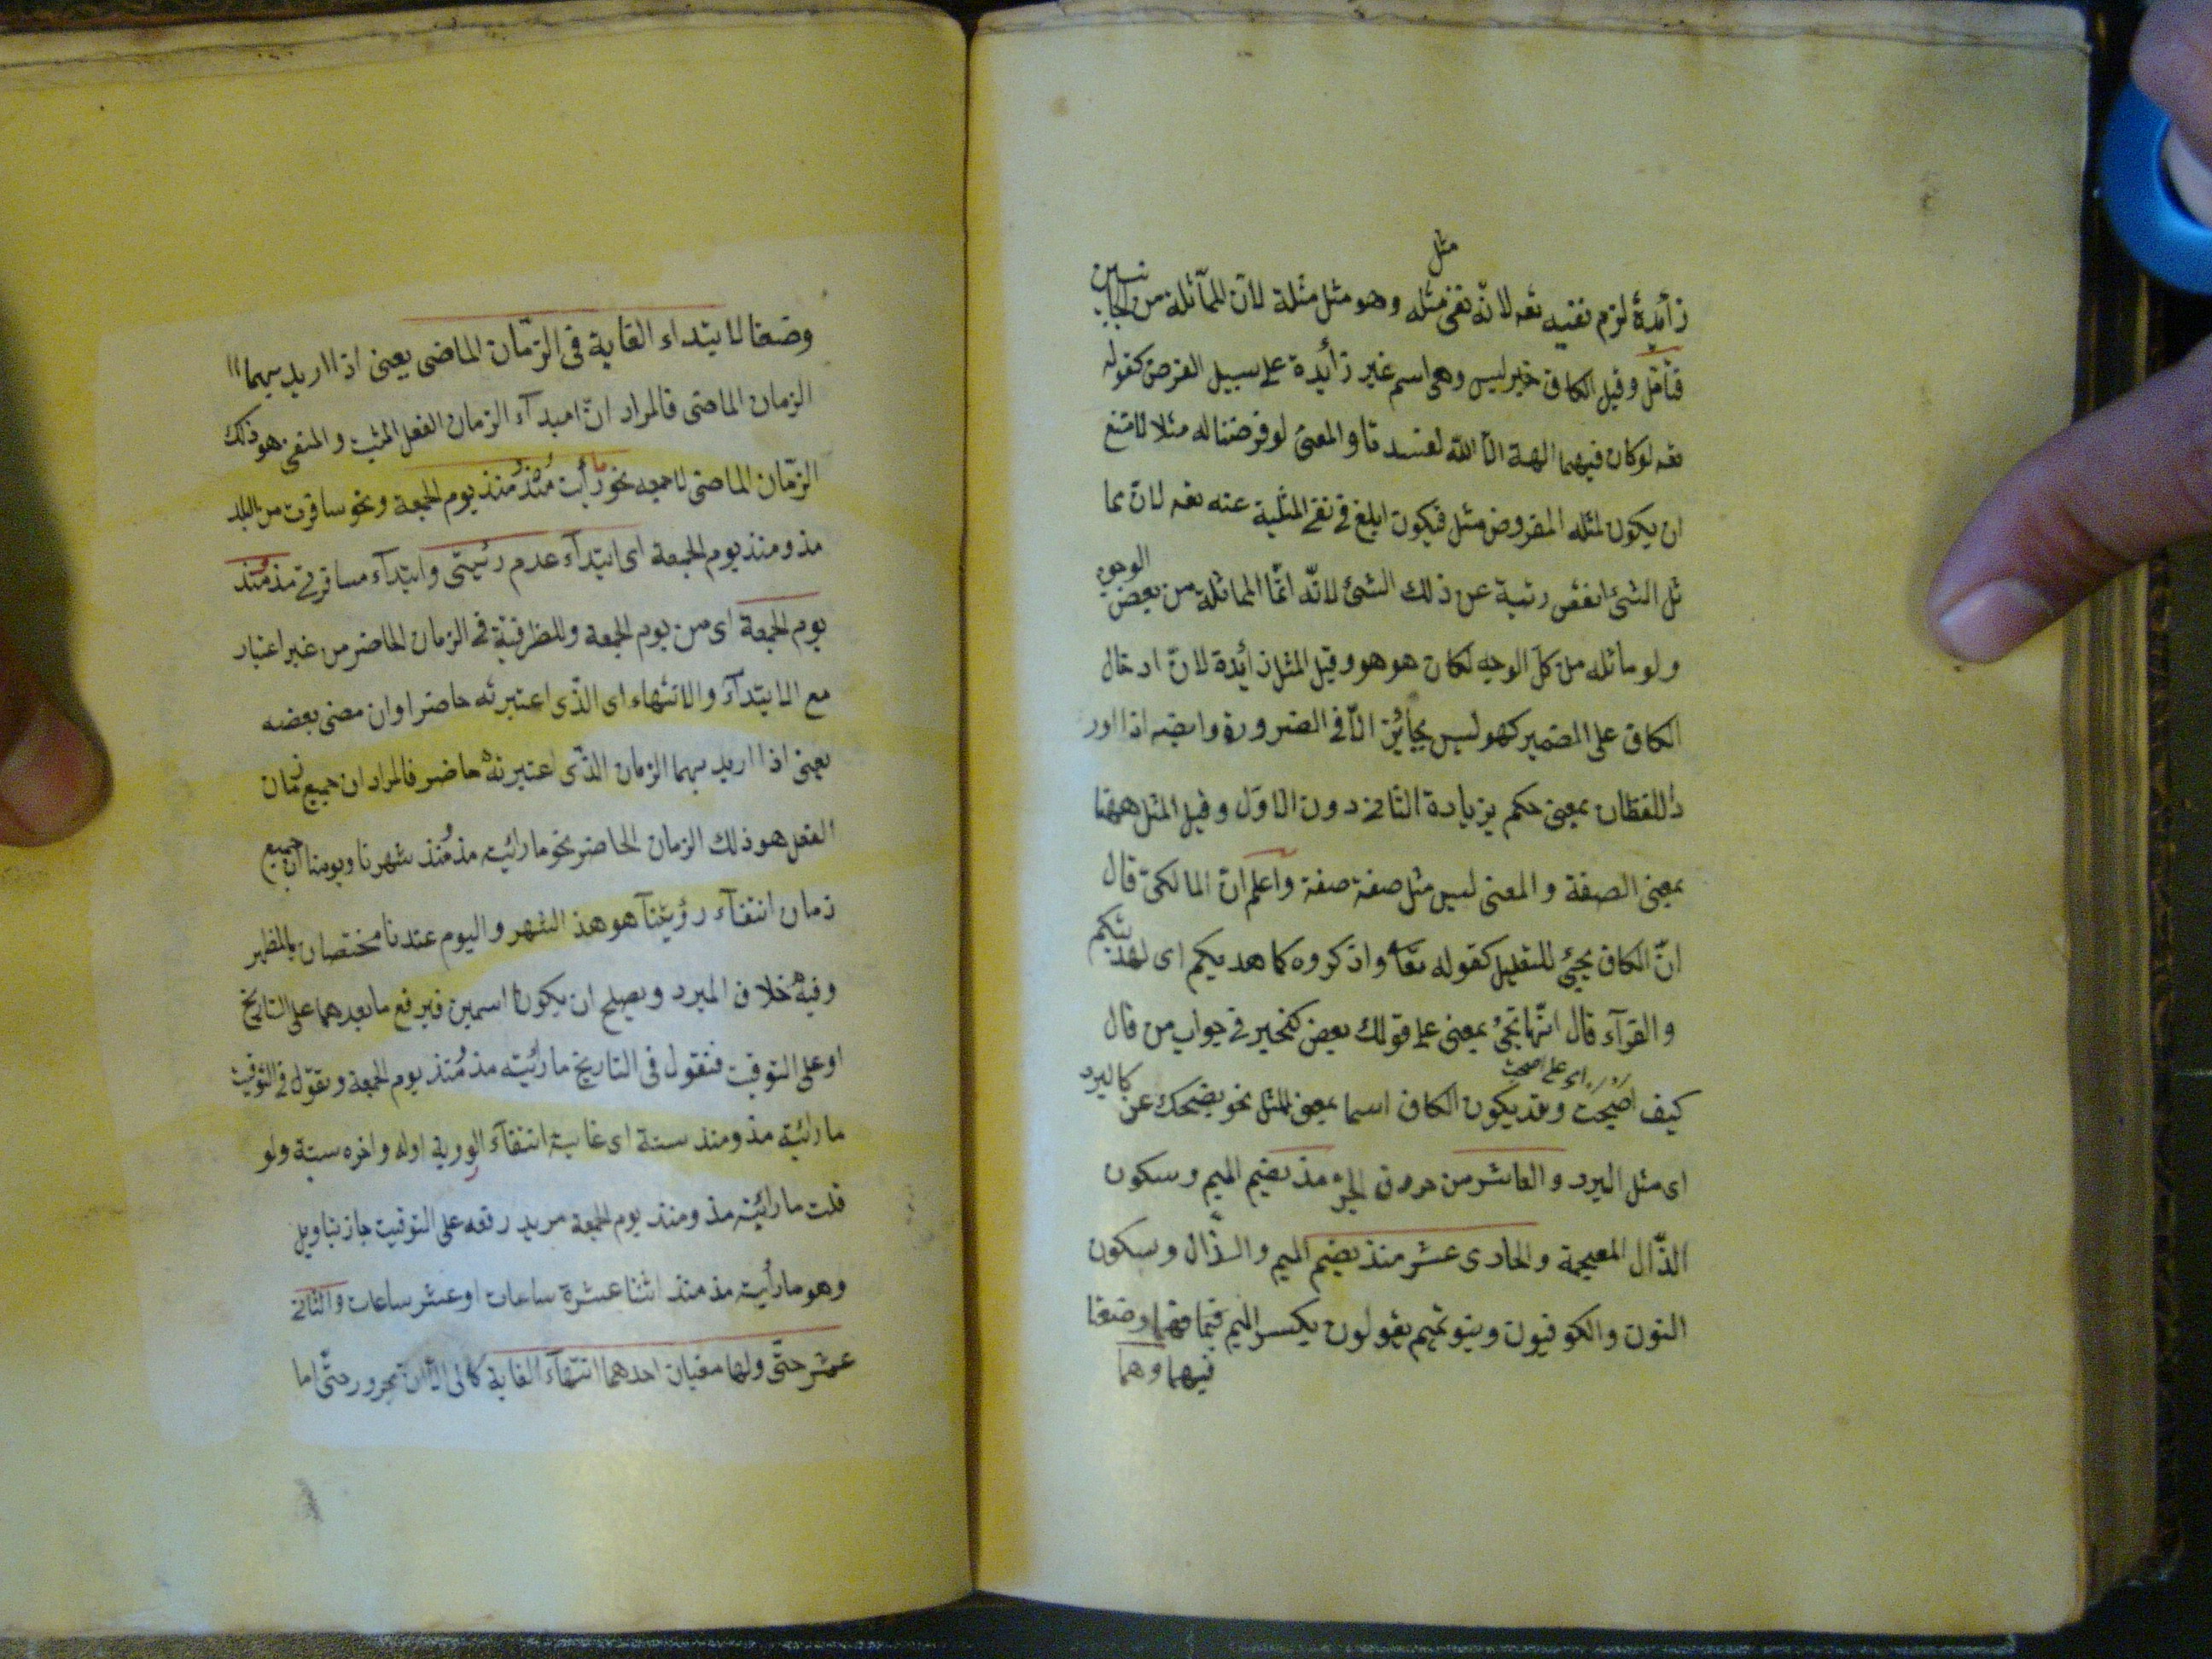 مثل
زأيدة لزم نفيه تعه لانّه نفى مثله وهو مثل مثلة لانّ المماثلة من الجانبين
فتأمّل وقيل الكاف خبر ليس وهى اسم غير زأيدة على سبيل الفرض كقوله
تعه لوكان فيهما الهة الّا اللّه لفسدتا والمعنى لو فرضنا له مثلا لامتنع
ان يكون لمثله المفروض مثل فيكون ابلغ فى نفى المثلية عنه تعه لانّ مما
ثل الشئ انقص رتبة عن ذلك الشئ لانّه انمّا المماثلة من بعض الوجوه
ولو ماثله من كلّ الوجه لكان هو هو وقيل المثل زأيدة لانّ ادخال
الكاف على الضمير كهو ليس بجأيز الّا فى الضرورة وايضه اذا اور
د اللفظان بمعنى حكم بزيادة الثانى دون الاوّل وقيل المثل ههنا
بمعنى الصفة والمعنى ليس مثل صفة صفة واعلم انّ المالكىّ قال
انّ الكاف يجئ للتعليل كقوله تعا واذكروه كما هديكم اى لهديتكم
والفرّآء قال انّها تجئ بمعنى على قولك بعض كخير فى جواب من قال
كيف اصبحت وقد يكون الكاف اسما بمعنى المثل نحو يضحك عن كالبرد
اى على اصبحت
اى مثل البرد والعاشر من حروف الجرّ مذ بضم الميم وسكون
الذّال المعجمة والحادى عشر منذ بضم الميم والذّال وسكون
النون والكوفيون وبنو تميم يقولون بكسر الميم فيهما وهما وضعا
فيهما وهما
وضعا لابتداء الغاية فى الزّمان الماضى يعنى اذا اريد بهما
الزمان الماضى فالمراد انّ امبدآء الزمان الفعل المثبت والمنفى هو ذلك
الزّمان الماضى لاجميعه نحو ما رأيت مُذ مُنذ يوم الجمعة ونحو سافرت من البلد
مذ ومنذ يوم الجمعة اى ابتدآء عدم رئيتى وابتدآء مسافرتى مذ مُنذ
يوم الجمعة اى من يوم الجمعة وللظرفيّة فى الزمان الحاضر من غير اعتبار
مع الابتدآء والانتهاء اى الذّى اعتبرته حاضرا وان مضى بعضه
يعنى اذا اريد بهما الزمان الذّى اعتبرته حاضر فالمراد ان جميع زمان
الفعل هو ذلك الزمان الحاضر نحو ما رائيته مذ مُنذ شهرنا ويومنا اى جميع
زمان انتفآء رؤيتنا هو هذ الشهر واليوم عندنا مختصان بالمظهر
وفيه خلاف المبرد ويصلح ان يكونا اسمين فيرفع ما بعدهما على التاريخ
او على التوقيت فتقول فى التاريخ ما رائيته مذ مُنذ يوم الجمعة وتقول فى التوقيت
ما رائيته مذ ومنذ سنة اى غاية انتفآء الروية اوله واخره سنة ولو
قلت ما رائيته مذ ومنذ يوم الجمعة مريد رفعه على التوقيت جاز بتاويل
وهو ما رأيته مذ منذ اثنا عشرة ساعات او عشر ساعات والثانى
عشر حتّى ولها معنيان احدهما انتهآء الغاية كالى الّا انّ مجرور حتّى اما